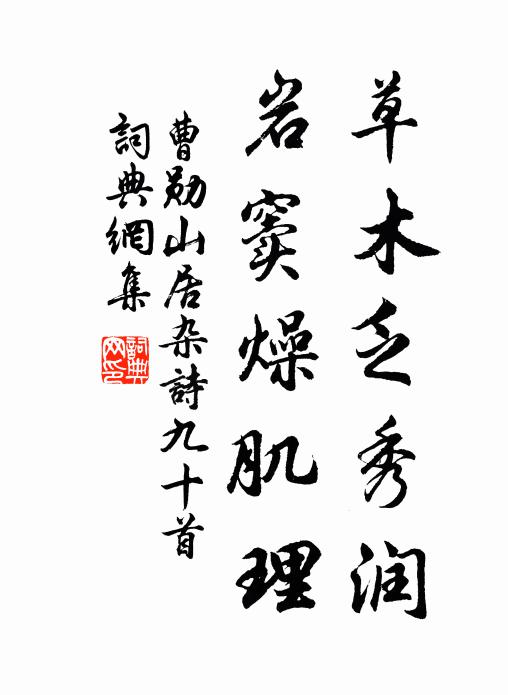 草木乏秀润
岩窦燥肌理
曹勋山居杂詩九十首
詞典網集
詞典网印